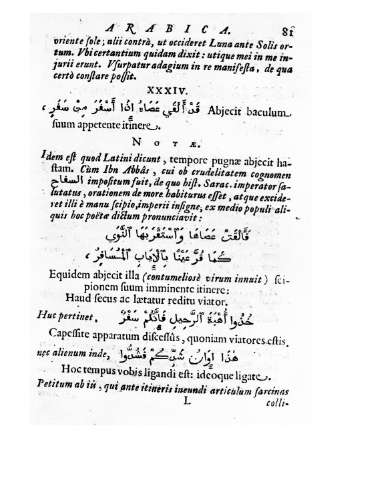 ARABICA. 81
oriente sole; alii contrà, ut occideret Luna ante Solis or-
tum. Ubi certantium quidam dixit: utique mei in me in-
jurii erunt. Usurpatur adagium in re manifesta, de qua
certò constare possit.
XXXIV.
قَدْ أَلْقَي عَصَاهُ إِذَا أَسْفَرَ مِنْ سَفَرٍ, Abjecit baculum
suum appetente itinere.
NOTÆ.
Idem est quod Latini dicunt, tempore pugnæ abjecit ha-
stam. Cùm Ibn Abbâs, cui ob crudelitatem cognomen
السفاح impositum fuit, de quo hist. Sarac. imperator sa-
lutatus, orationem de more habiturus esset, atque excide-
ret illi è manu scipio, imperii insigne, ex medio populi ali-
quis hoc poëtæ dictum pronunciavit:
فَأَلْقَتْ عَصَاهَا وَاسْتَقَرَّ بِهَا النَّوَي
كَمَا قَرَّ عَيْنًا بِالْإِيَابِ الْمُسَافِرُ
Equidem abjecit illa (contumeliosè virum innuit) sci-
pionem suum imminente itinere:
Haud secus ac lætatur reditu viator.
Huc pertinet, خُذُوا أُهْبَةَ الرَّحِيلِ فَإِنَّكُمْ سَفْرٌ
Capessite apparatum discessûs, quoniam viatores estis.
nec alienum inde, هٰذَا أَوَانُ شَدِّكُمْ فَشُدُّوا
Hoc tempus vobis ligandi est: ideoque ligate.
Petitum ab iis, qui ante itineris ineundi articulum sarcinas
L colli-